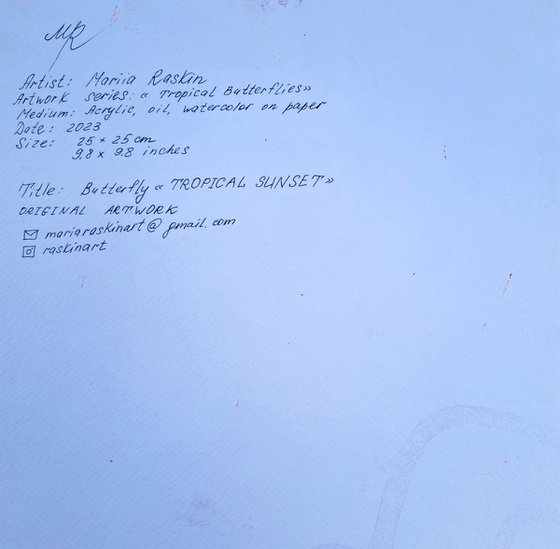 MR
Artist: Mariia Raskin
Artwork series: « Tropical Butterflies»
Medium: Acrylic, oil, watercolor on paper
Date: 2023
Size: 25 * 25 cm
9.8 x 9.8 inches
Title: Butterfly « TROPICAL SUNSET»
ORIGINAL ARTWORK
mariaraskinart@gmail.com
raskinart